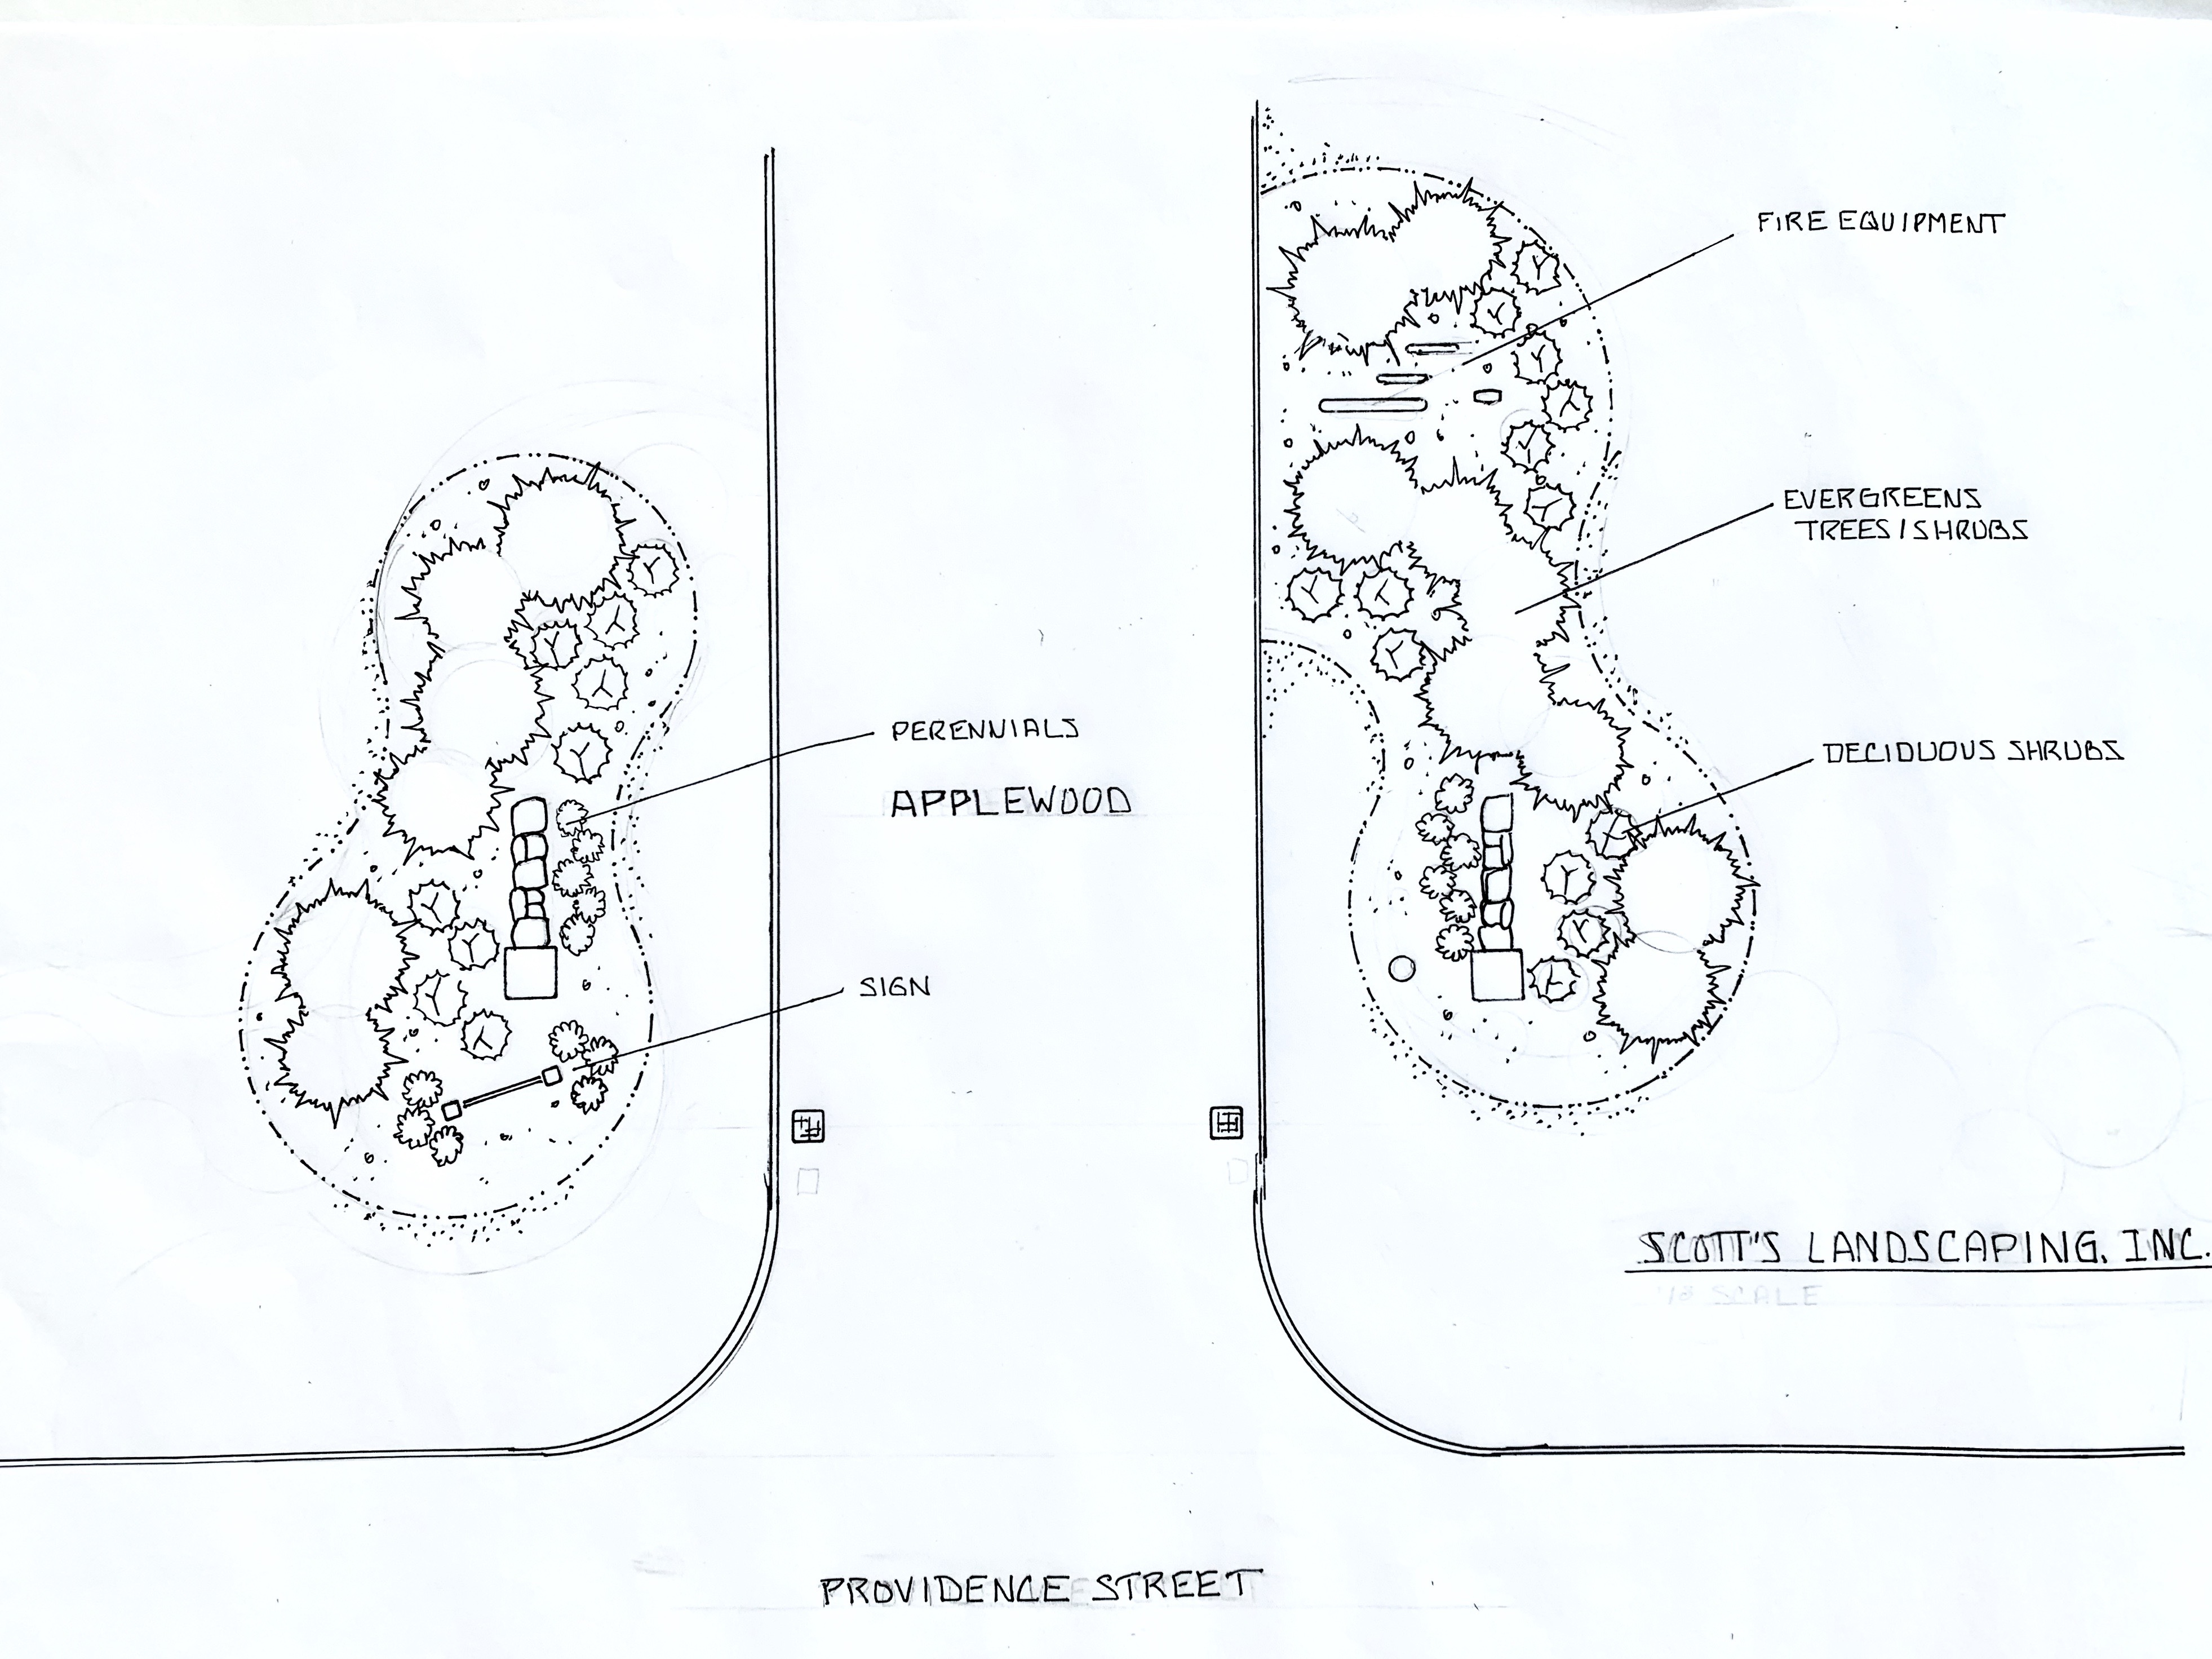 FIRE EQUIPMENT
EVERGREENS
TREES/SHRUBS
PERENNIALS
DECIDUOUS SHRUBS
APPLEWOOD
SIGN
SCOTT'S LANDSCAPING, INC.
SCALE
PROVIDENCE STREET